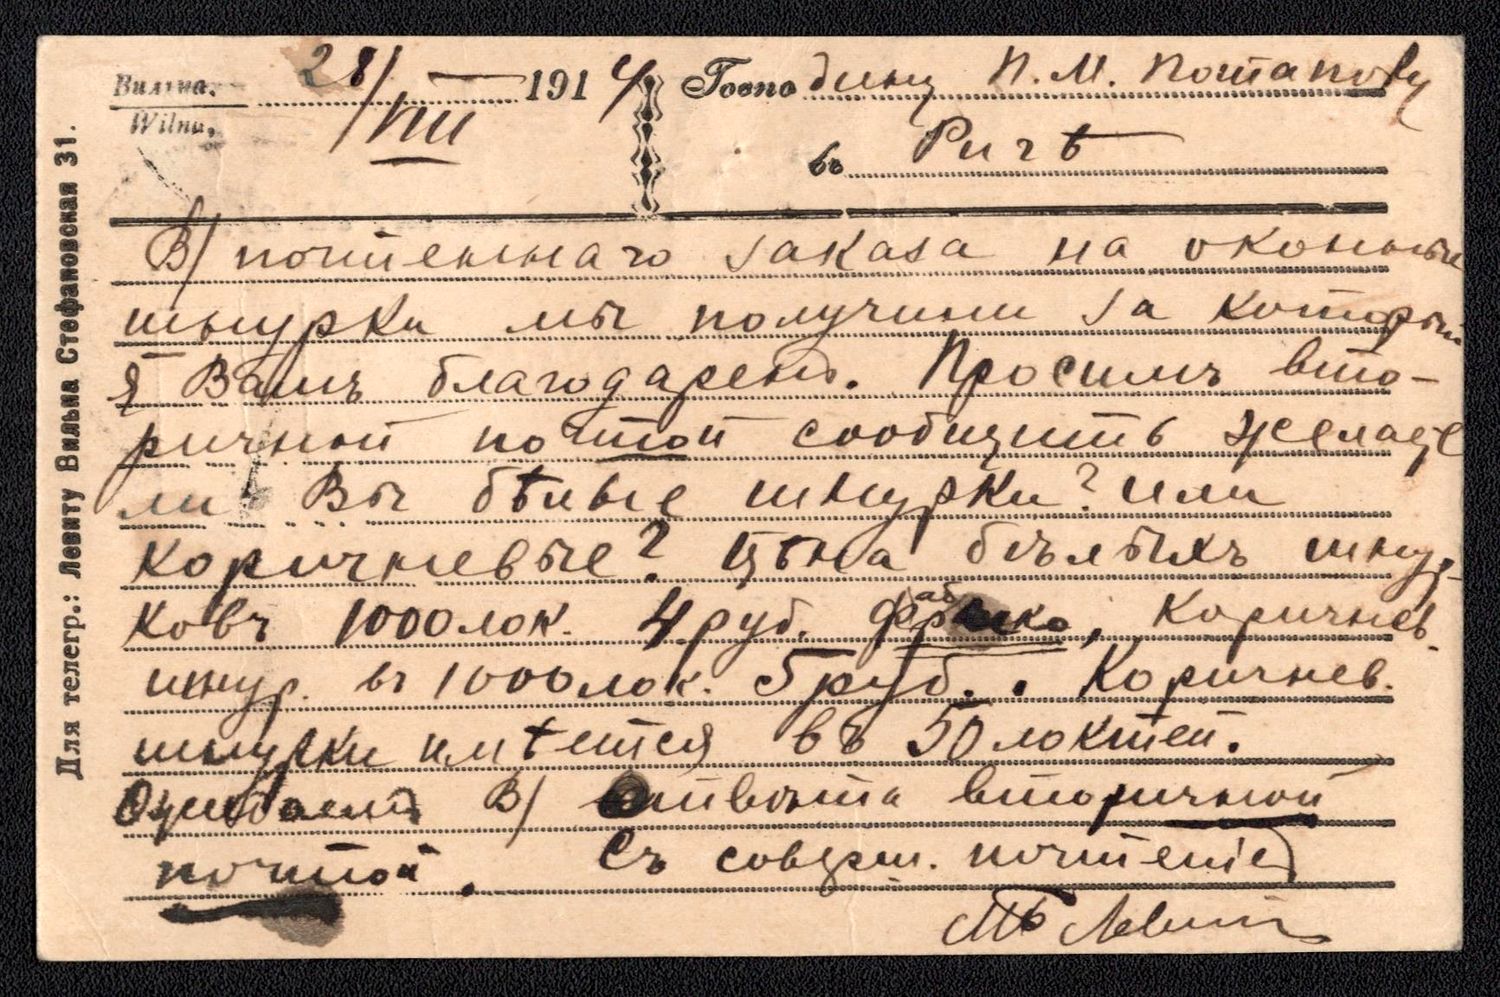 Вильна, 28/VIII 1914
Wilna,
Господину П. М. Потапову
въ Ригѣ
Для телегр.: Левиту Вильна Стефановская 31.
В/ почтеннаго заказа на оконные
шнурки мы получили за который
я Вамъ благодаренъ. Просимъ вто-
ричной почтой сообщить желаете
ли Вы бѣлые шнурки? или
коричневые? Цѣна бѣлыхъ шнур-
ковъ 1000 лок. 4 руб. коричнев.
шнур. въ 1000 лок. 5 руб.. Коричнев.
шнурки имѣется въ 50 локтей.
Ожидаемъ В/ отвѣта вторичной
почтой. Съ соверш. почтеніем
Левит